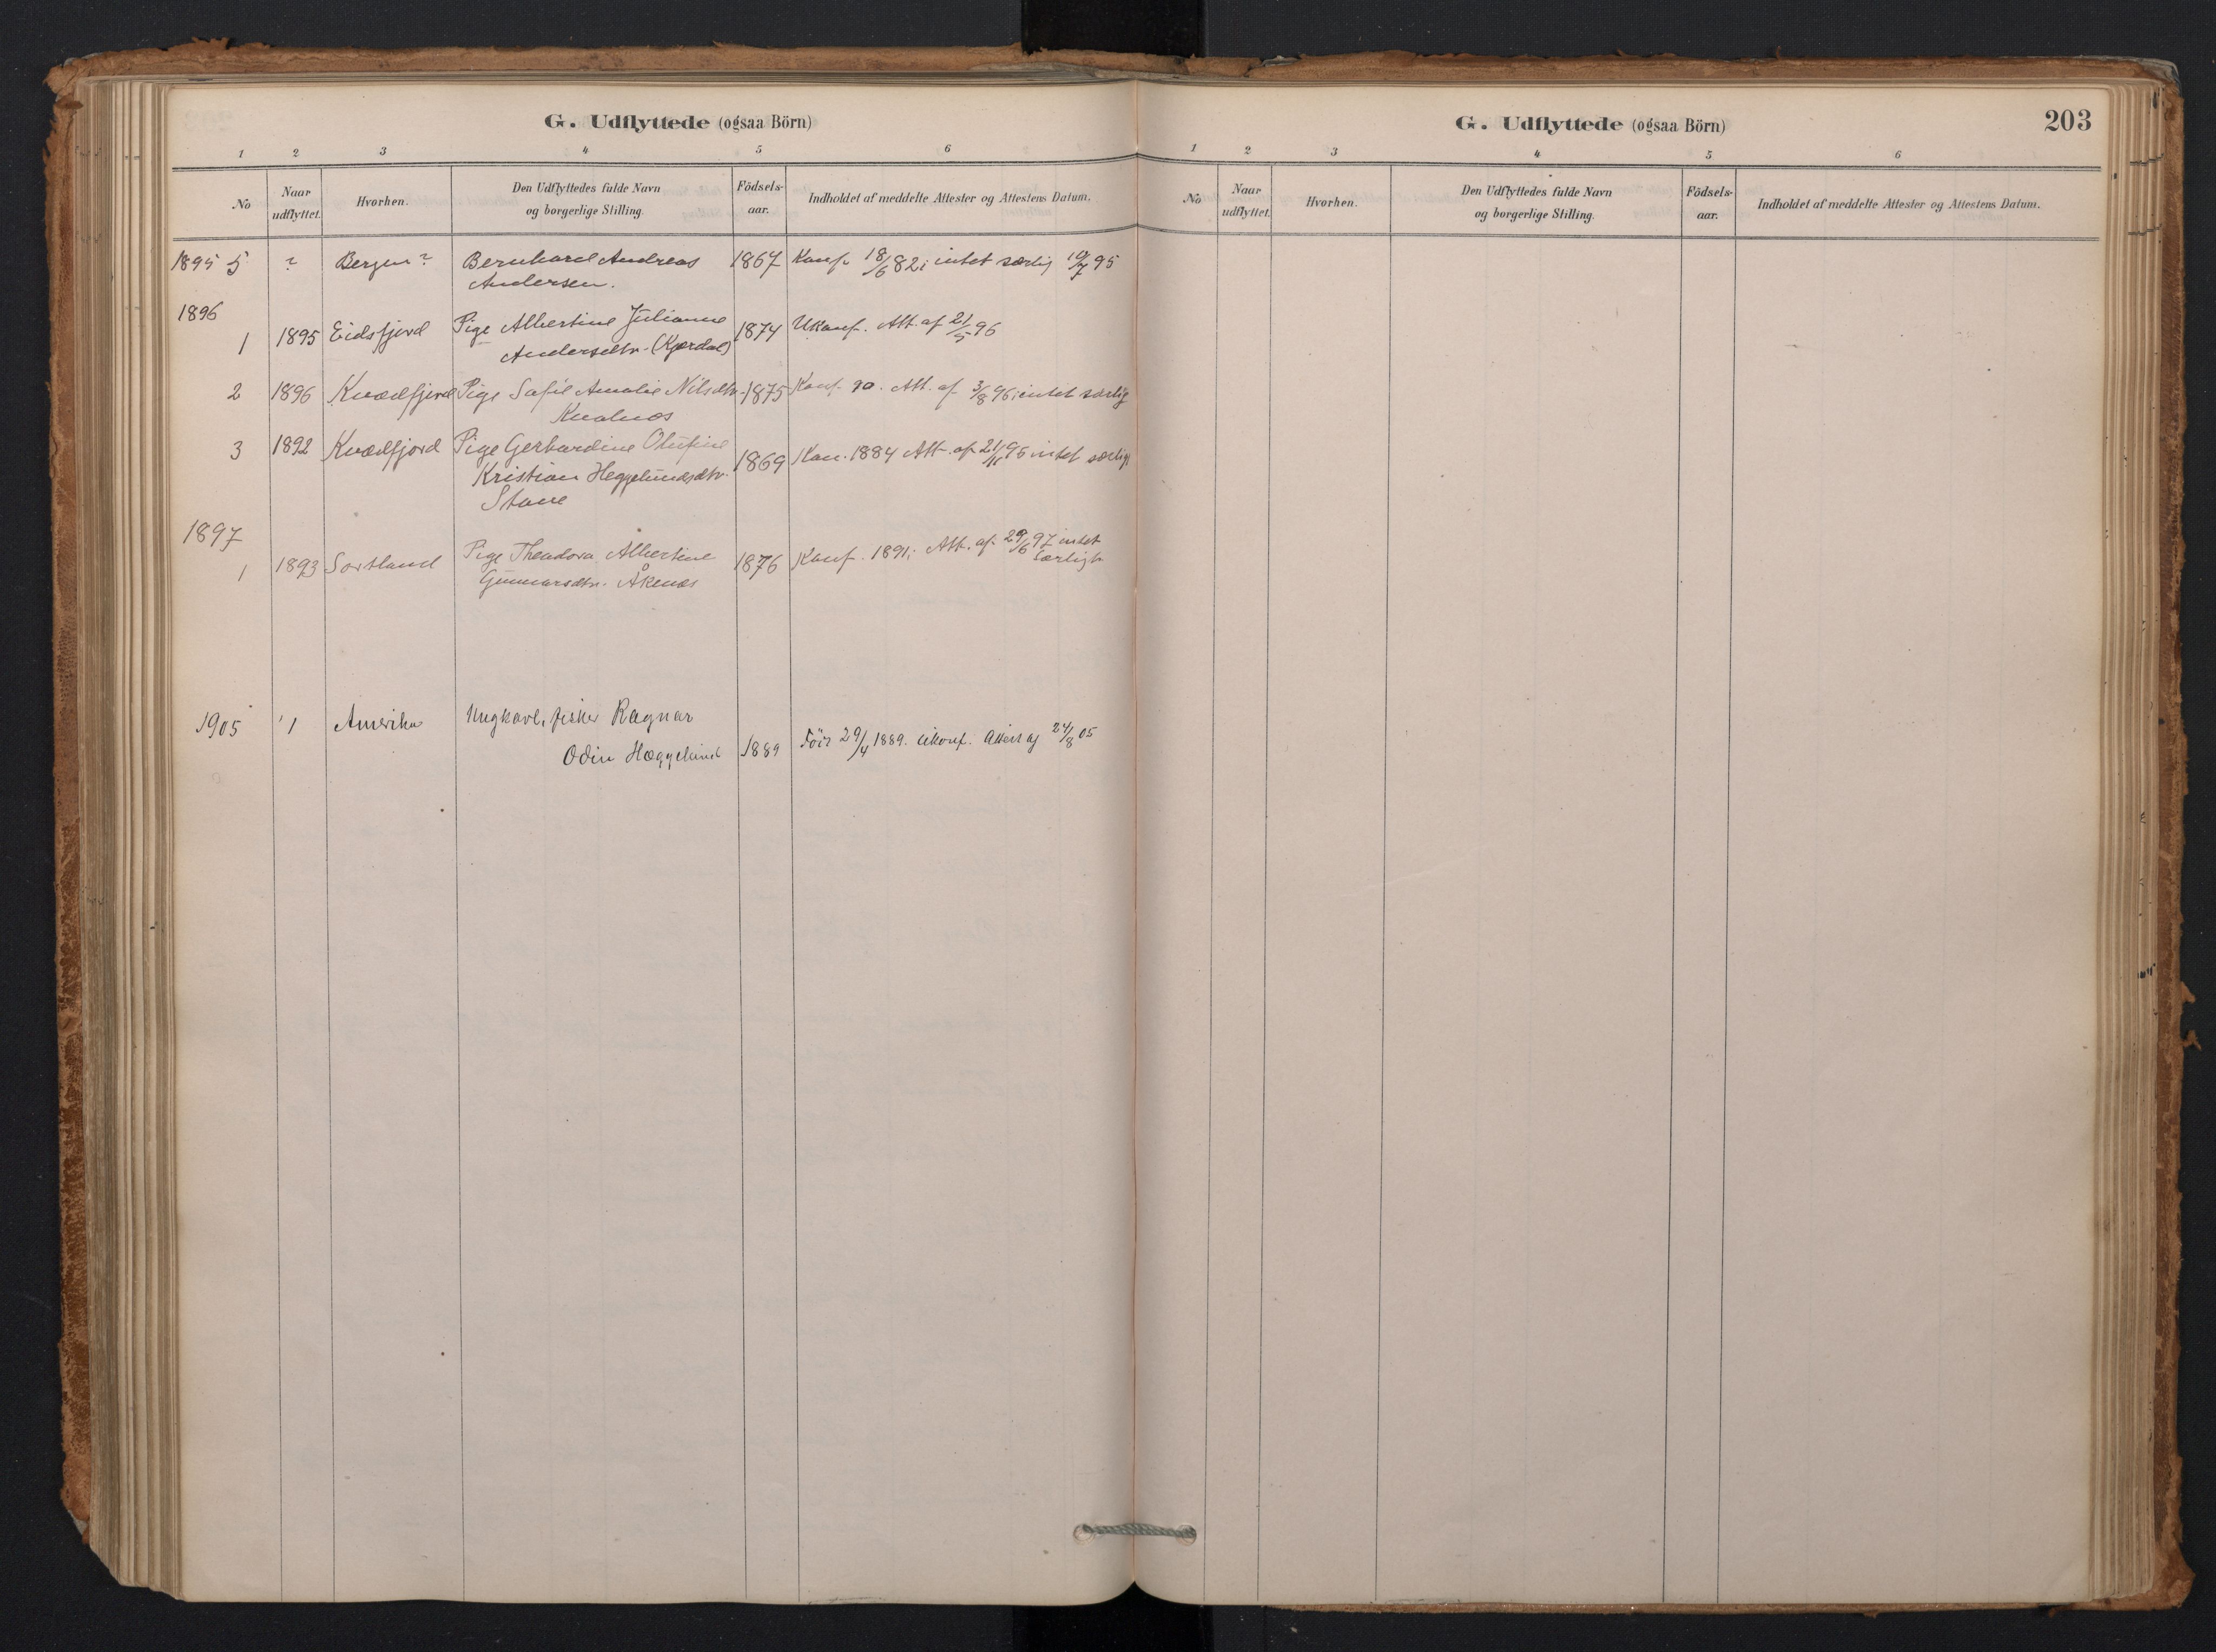 G. Udflyttede (ogsaa Börn)
1 2 3 4 5 6
No
Naar udflyttet.
Hvorhen.
Den Udflyttedes fulde Navn og borgerlige Stilling.
Födsels-aar.
Indholdet af meddelte Attester og Attestens Datum.
1895 5 ? Bergen? Bernhard Andreas 1867 Konf. 18/6 82; intet særlig 10/7 95
Andersen.
1896
1 1895 Eidsfjord Pige Albertine Julianne 1874 Ukonf. Att. af 21/5 96
Andersdtr. (Kjørdal)
2 1896 Kvædfjord Pige Safie Amalie Nilsdtr. 1875 Konf. 90. Att. af 3/8 96; intet særlig
Kvalnæs
3 1892 Kvædfjord Pige Gerhardine Olufine 1869 Kon. 1884 Att. af 21/11 95 intet særligt
Kristian Heggelundsdtr.
Stave
1897
1 1893 Sortland Pige Theodora Albertine 1876 Konf. 1891; Att. af 29/6 97 intet
Gunnarsdtr. Åkenæs særligt
1905 1 Amerika Ungkarl, fisker Ragnar
Odin Hæggelund 1889 Född 29/4 1889. Ukonf. Attest af 24/8 05
G. Udflyttede (ogsaa Börn)
203
1 2 3 4 5 6
No
Naar udflyttet.
Hvorhen.
Den Udflyttedes fulde Navn og borgerlige Stilling.
Födsels-aar.
Indholdet af meddelte Attester og Attestens Datum.